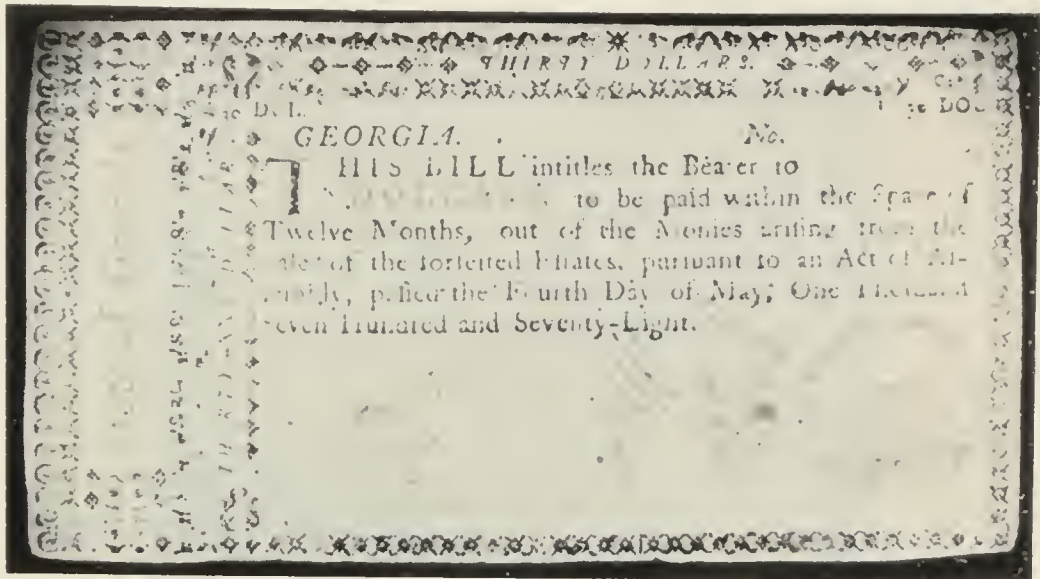 THIRTY DOLLARS.
30 DOL
30 DOL
GEORGIA. No.
THIS BILL intitles the Bearer to
to be paid within the Space of
Twelve Months, out of the Monies arising from the
Sale of the forfeited Estates, pursuant to an Act of As-
sembly, passed the Fourth Day of May, One Thousand
Seven Hundred and Seventy-Eight.
THIRTY DOLLARS